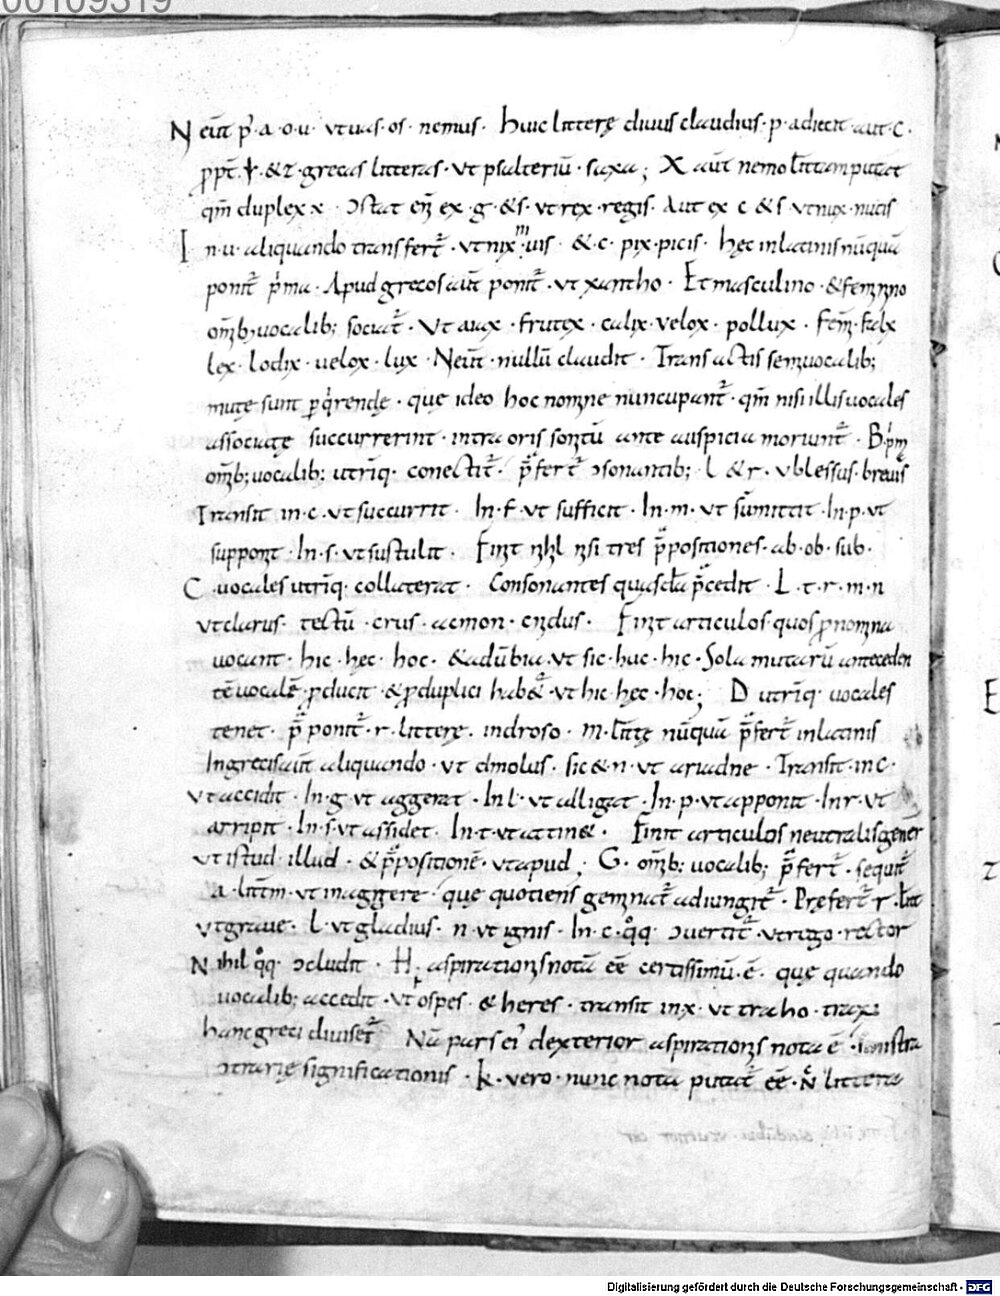 00109319
Neut̄ p̄ · a · o · u · ut uas · os · nemus · Huic litterę diuus claudius · p · adiecit aut · c ·
ppt̄ · ψ · & ξ · grecas litteras · ut psalteriū · saxa ; X aut̄ nemo litt̄am putat
qm̄ duplex x · ɔstat en̄ ex · g · & s · ut rex · regis · Aut ex c & s ut nux · nucis
In · u · aliquando transfert̄ · ut nix niuis · & c · pix · picis · hęc in latinis nūquā
ponit̄ p̄ma · Apud grecos aut̄ ponit̄ · ut xantho · Et masculino · & feminino
om̄ib; uocalib; sociat̄ · Ut aiax · frutex · calix · velox · pollux · Fem̄ · falx
lex · lodix · uelox · lux · Neut̄ · nullū claudit · Transactis semiuocalib;
mutę sunt pq̄rendę · quę ideo hoc nomine nuncupant̄ · qm̄ nisi illis uocales
associatę succurrerint · intra oris sonitū ante auspicia moriunt̄ · B · p̄m
om̄ib; uocalib; utriq̄ · conectit̄ · p̄fert̄ ɔsonantib; l & r · ut blessus · breuis
Transit in · c · ut succurrit · In · f · ut sufficit · In · m · ut sūmittit · In · p · ut
supponit · In · s · ut sustulit · Finit nihil nisi tres p̄positiones · ab · ob · sub ·
C · uocales utriq̄ · collaterat · Consonantes quasdā p̄cedit · L · t · r · m · n
ut clarus · tectū · crus · acmon · cnidus · Finit articulos quos pnomina
uocant · hic · hęc · hoc · & aduƀia · ut sic · huc · hic · Sola mutarū anteceden
tē uocalē · pducit · & pduplici habet̄ · ut hic · hęc · hoc ; D utriq̄ · uocales
tenet · p̄ponit̄ · r · litterę · in droso · m · litt̄ę nūquā p̄fert̄ in latinis
In grecis aut̄ aliquando · ut dmolus · sic & n · ut ariadne · Transit · in c ·
ut accidit · In · g · ut aggerat · In l · ut alligat · In · p · ut apponit · In r · ut
arripit · In · s · ut assidet · In · t · ut attin& · Finit articulos neutralis gener
ut istud · illud · & p̄positionē · ut apud ; G · om̄ib; uocalib; p̄fert̄ · sequit̄
a · litt̄m · ut in agitere · quę quotiens geminat̄ adiungit̄ · Pręfert̄ r · litt̄
ut graue · L · ut gladius · n · ut ignis · In · c · qq̊ · ɔuertit̄ · ut rigo · rector
Nihil qq̊ · ɔcludit · H · aspirationis notā eē certissimū · ē · quę quando
uocalib; accedit · ut ospes · & heres · transit in x · ut traho · traxi
hanc greci diuiser̄ Nā pars ei᾿ dexterior aspirationis nota ē · sinistra
ɔtrarię significationis · k · vero · nunc nota putat̄ eē · n̄ littera
Digitalisierung gefördert durch die Deutsche Forschungsgemeinschaft · DFG